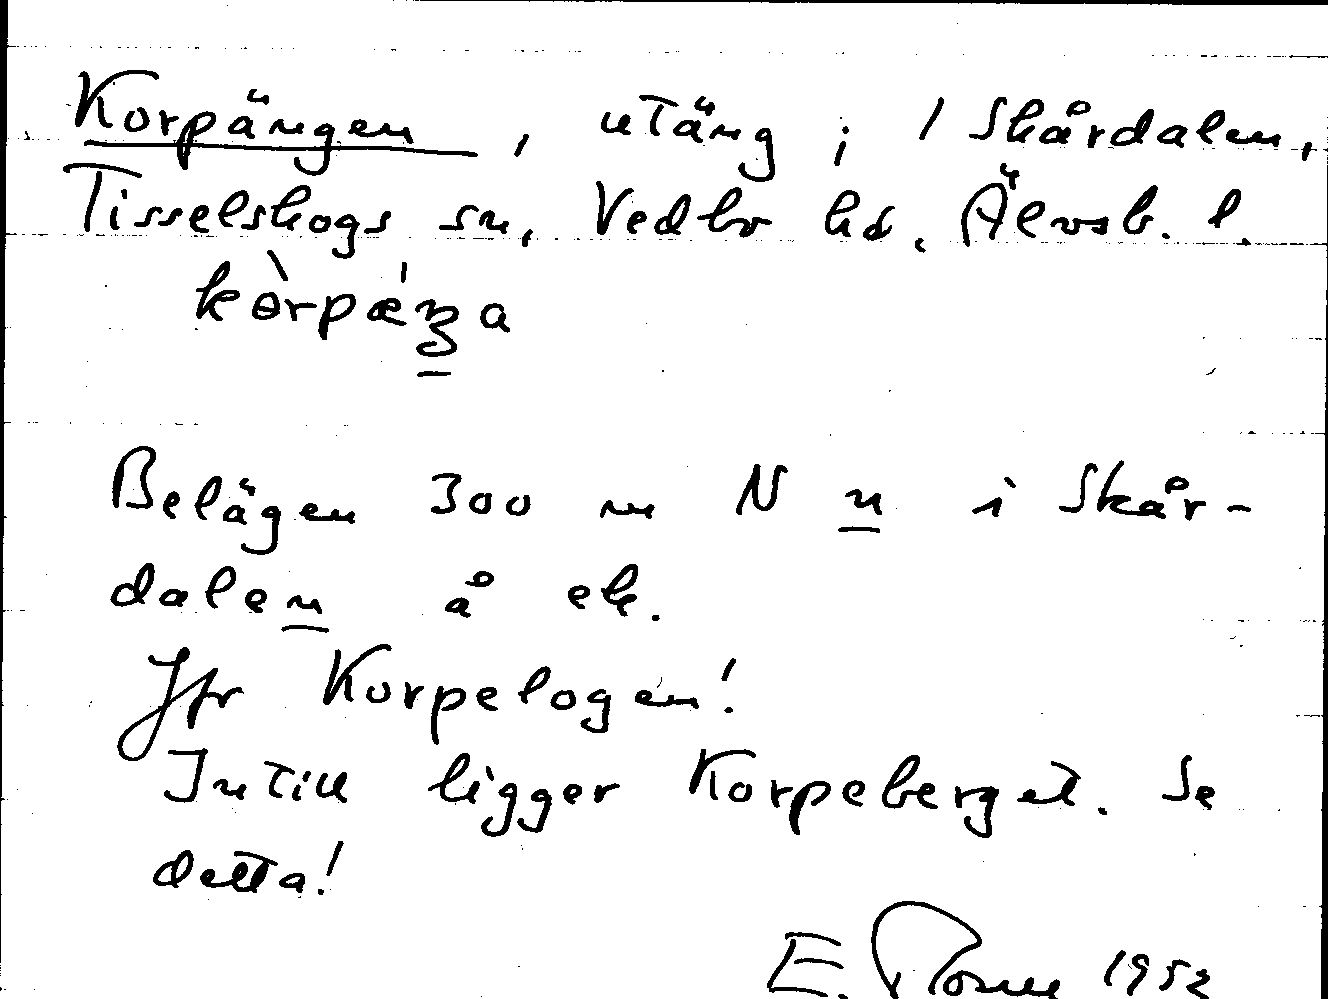 Korpängen, utäng i 1 Skårdalen,
Tisselskogs sn, Vedbo hd. Älvsb. l.
Belägen 300 m N u i Skår-
dalen å ek.
Jfr Korpelogen!
Intill ligger Korpeberget. Se
detta!
E. 1952